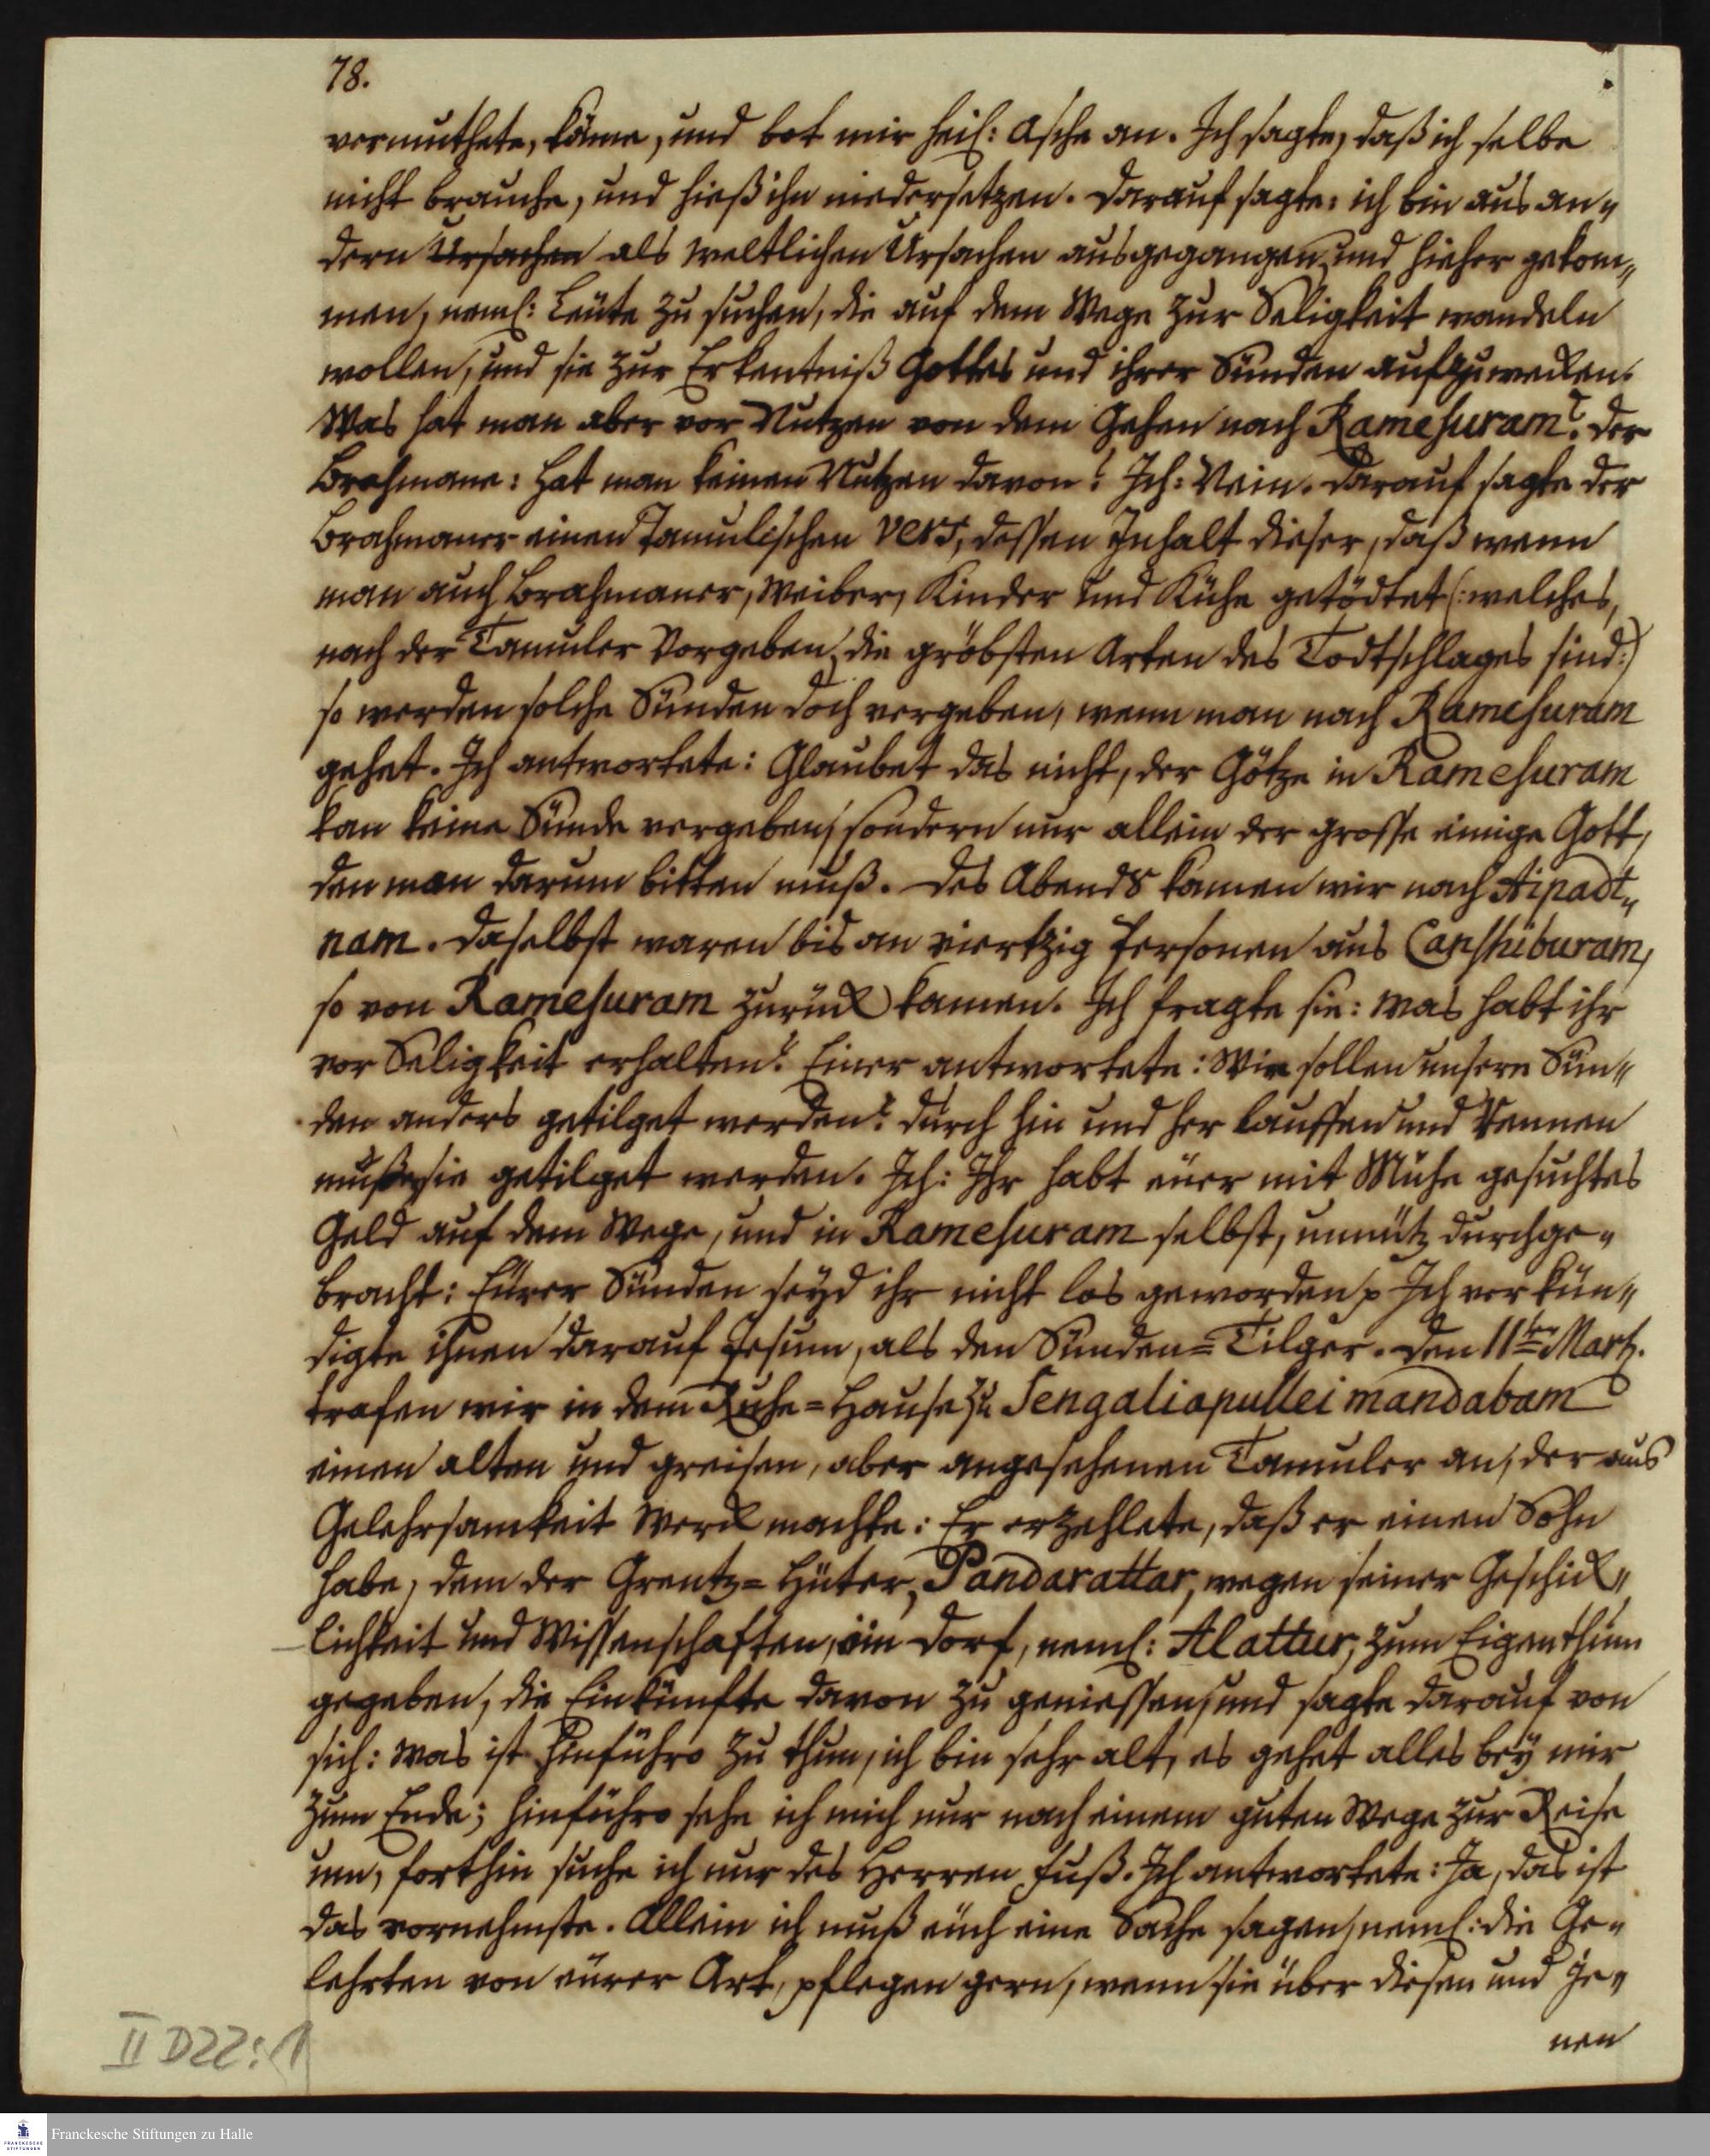 78.
vermuthete, käme, und bot mir heil: Asche an. Ich sagte, daß ich selbe
nicht brauche, und hieß ihn niedersetzen. Darauf sagte: ich bin aus an„
dern Ursachen als weltlichen Ursachen ausgegangen, und hieher gekom„
men, neml: Leüte zu suchen, die auf dem Wege zur Seligkeit wandeln
wollen, und sie zur Erkentniß Gottes und ihrer Sünden aufzuwecken.
Was hat man aber vor Nutzen von dem Gehen nach Ramesuram? Der
Brahmane: Hat man keinen Nutzen davon? Ich: Nein. Darauf sagte der
Brahmaner einen Tamulischen Vers, dessen Inhalt dieser, daß wenn
man auch Brahmaner, Weiber, Kinder und Kühe getödtet (: welches,
nach der Tamuler Vorgeben, die gröbsten Arten des Todtschlages sind:)
so werden solche Sünden doch vergeben, wenn man nach Ramesuram
gehet. Ich antwortete: Glaubet das nicht, der Götze in Ramesuram
kan keine Sünde vergeben, sondern nur allein der grosse einige Gott,
den man darum bitten muß. Des Abends kamen wir nach Aipadt„
nam. Daselbst waren bis an viertzig Personen aus Canshiburam,
so von Ramesuram zurück kamen. Ich fragte sie: Was habt ihr
vor Seligkeit erhalten? Einer antwortete: Wie sollen unsere Sün„
den anders getilget werden? Durch hin und her lauffen und Rennen
müßen sie getilget werden. Ich: Ihr habt eüer mit Mühe gesuchtes
Geld auf dem Wege, und in Ramesuram selbst, unnütz durchge„
bracht: Eürer Sünden seyd ihr nicht los geworden p Ich verkün„
digte ihnen darauf Jesum, als den Sünden=Tilger. Den 11ten Martz.
trafen wir in dem Ruhe=Hause zu Sengaliapullei mandabam
einen alten und greisen, aber angesehenen Tamuler an, der aus
Gelehrsamkeit Werck machte: Er erzehlete, daß er einen Sohn
habe, dem der Grentz=Hüter, Pandarattar, wegen seiner Geschick„
lichkeit und Wissenschaften, ein Dorf, neml: Alattur, zum Eigenthum
gegeben, die Einkünfte davon zu geniessen, und sagte darauf von
sich: Was ist hinführo zu thun, ich bin sehr alt, es gehet alles bey mir
zum Ende; hinführo sehe ich mich nur nach einem guten Wege zur Reise
um, forthin suche ich nur des Herren Fuß. Ich antwortete: Ja, das ist
das vornehmste. Allein ich muß eüch eine Sache sagen, neml: die Ge„
lehrten von eürer Art, pflegen gern, wenn sie über diesen und je„
nen
II D22:1
Franckesche Stiftungen zu Halle